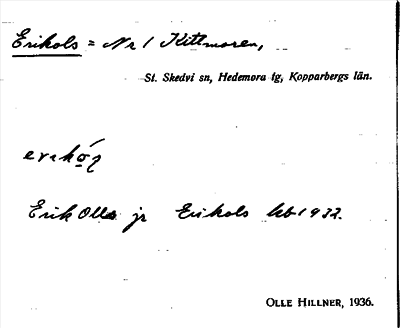 Erikols = Nr 1 Kittmoren,
St. Skedvi sn, Hedemora tg, Kopparbergs län.
Erik Olls jr Erikols hb 1933.
OLLE HILLNER, 1936.